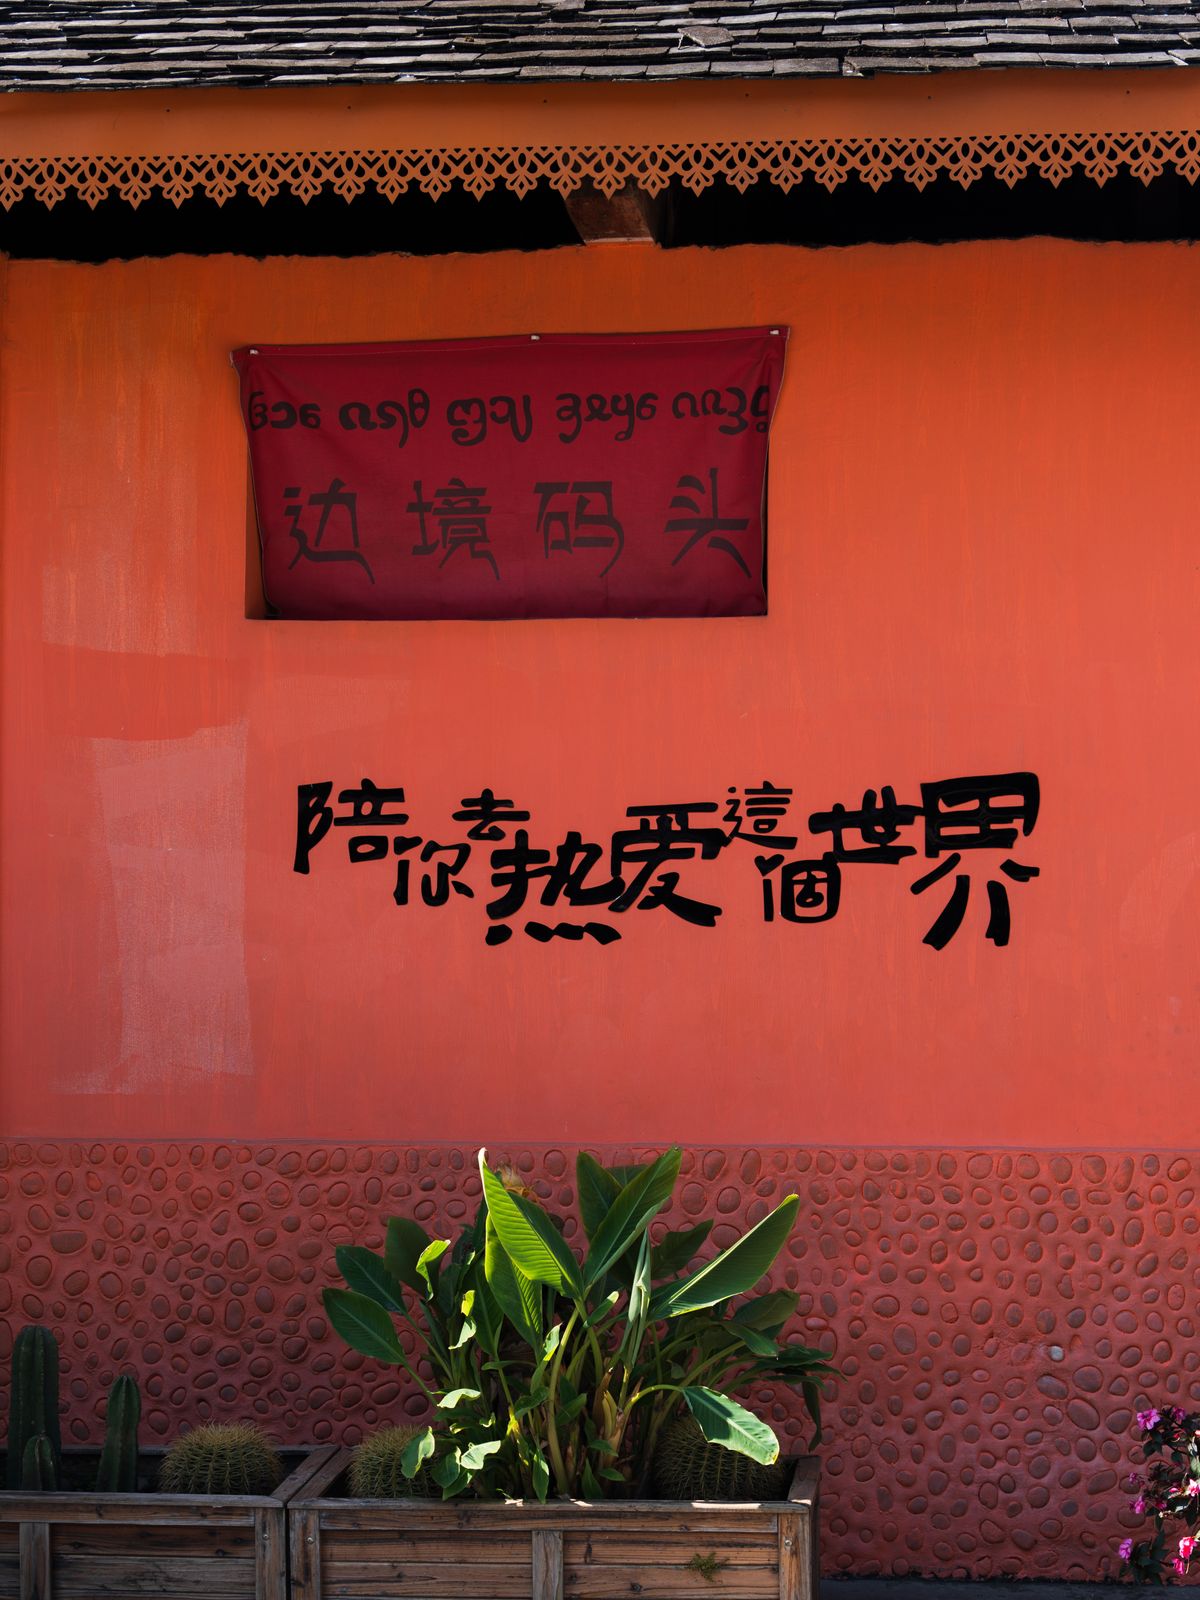 边境码头
陪你去热爱這個世界